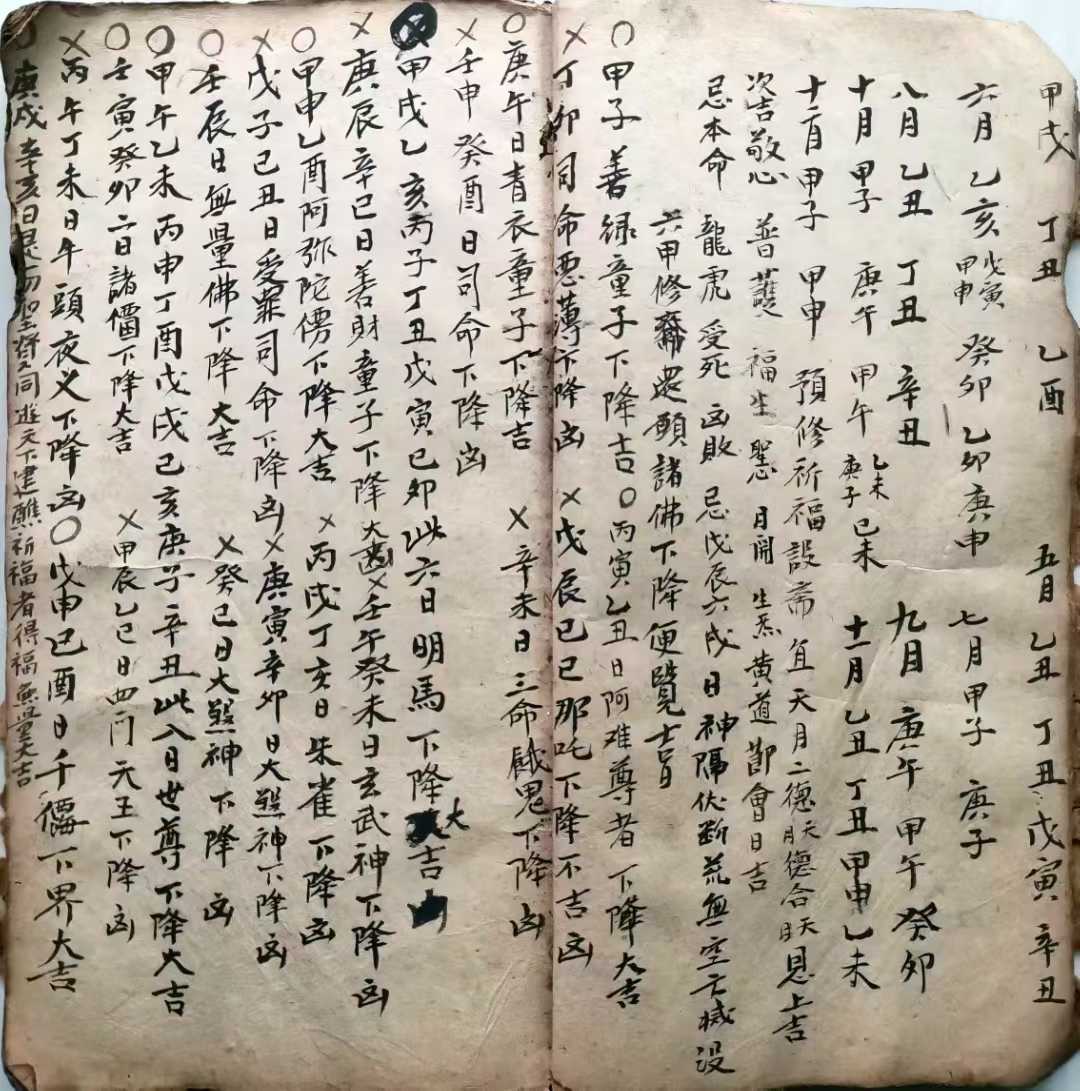 甲戌 丁丑 乙酉 五月 乙丑 丁丑 戊寅 辛丑
六月 乙亥 戊寅 甲申 癸卯 乙卯 庚申 七月 甲子 庚子
八月 乙丑 丁丑 辛丑 九月 庚午 甲午 癸卯
十月 甲子 庚午 甲午 乙未 庚子 己未 十一月 乙丑 丁丑 甲申 乙未
十二月 甲子 甲申 預修祈福設斋 宜天月二德 天德合 天恩上吉
次吉敬心 普護 福生 聖心 月開 生炁 黄道 節會日吉
忌本命 龍虎 受死 凶敗 忌戊辰六戌日神隔伏断荒無空亡滅没
六甲修齋还願諸佛下降便覽吉
〇甲子善緑童子下降吉〇丙寅乙丑日阿难尊者下降大吉
×丁卯司命悪薄下降凶 ×戊辰己巳那吒下降不吉凶
〇庚午日青衣童子下降吉 ×辛未日三命餓鬼下降凶
×壬申癸酉日司命下降凶
甲戌乙亥丙子丁丑戊寅己卯此六日明馬下降大吉
×庚辰辛巳日善财童子下降大 ×壬午癸未日玄武神下降凶
〇甲申乙酉阿弥陀僗下降大吉 ×丙戌丁亥日朱雀下降凶
×戊子己丑日受罪司命下降凶×庚寅辛卯日大煞神下降凶
〇壬辰日無量佛下降大吉 ×癸巳日大煞神下降凶
〇甲午乙未丙申丁酉戊戌己亥庚子辛丑此八日世尊下降大吉
〇壬寅癸卯二日諸僊下降大吉 ×甲辰乙巳日四门元王下降凶
×丙午丁未日午頭夜义下降凶〇戊申己酉日千僊下界大吉
〇庚戌辛亥日 同遊天下建醮祈福者得福無量大吉